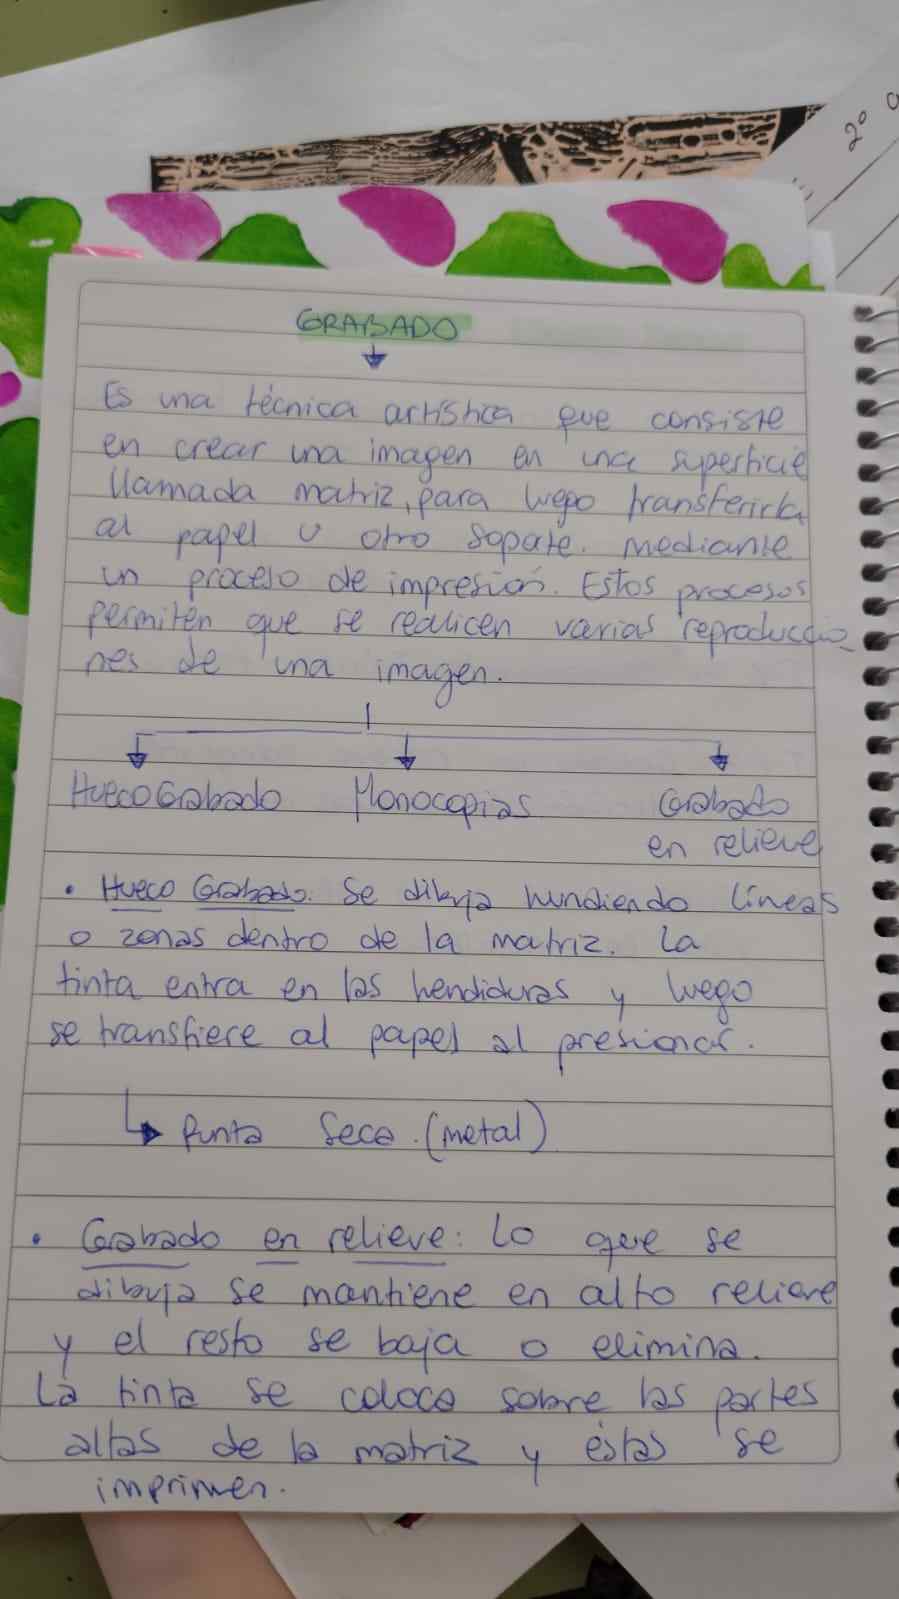 2º
GRABADO
Es una técnica artística que consiste
en crear una imagen en una superficie
llamada matriz, para luego transferirla
al papel u otro sopate. mediante
un proceso de impresión. Estos procesos
permiten que se realicen varias reproduccio_
nes de una imagen.
HuecoGrabado Monocopias Grabado
en relieve
• Hueco Grabado. Se dibuja hundiendo líneas
o zonas dentro de la matriz. La
tinta entra en las hendiduras y luego
se transfiere al papel al presionar.
Punta Seca. (metal)
• Grabado en relieve: Lo que se
dibuja se mantiene en alto relieve
y el resto se baja o elimina.
La tinta se coloca sobre las partes
altas de la matriz y éstas se
imprimen.